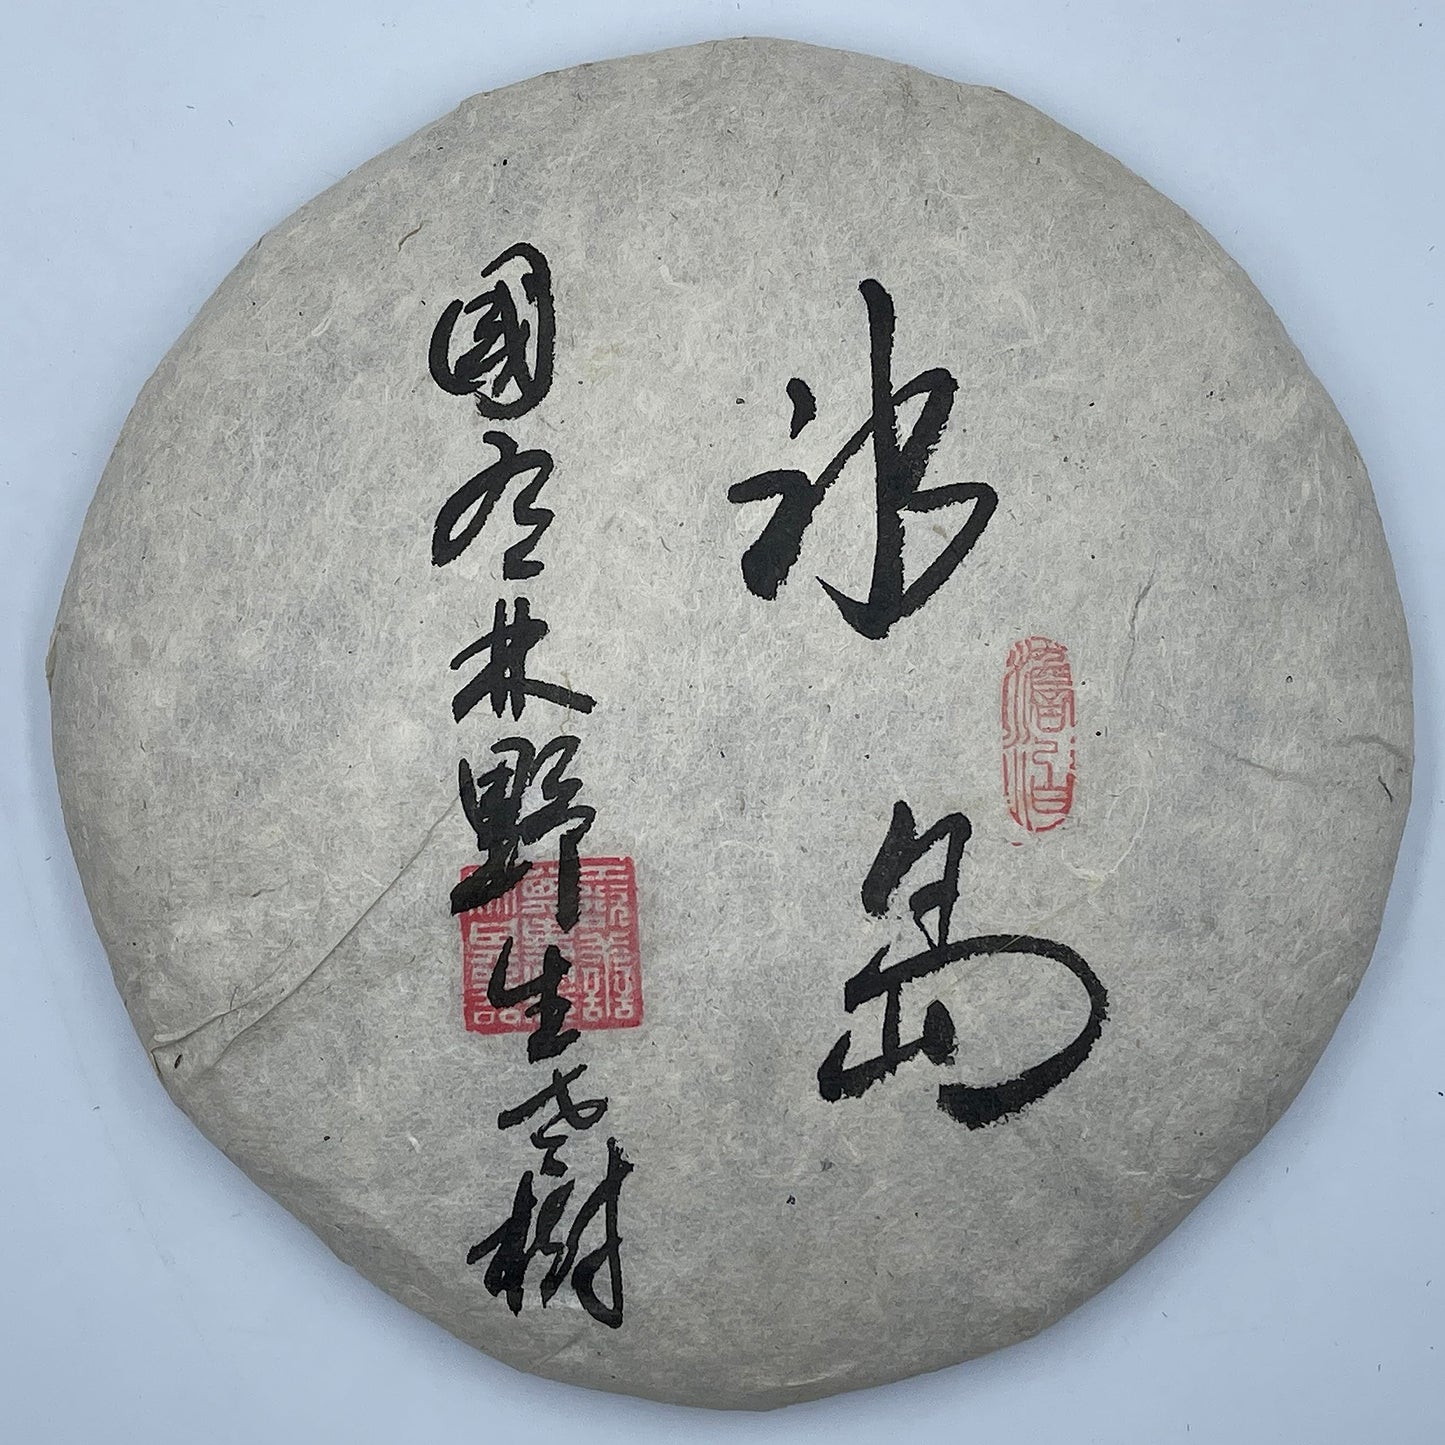 冰島
國有林野生老樹